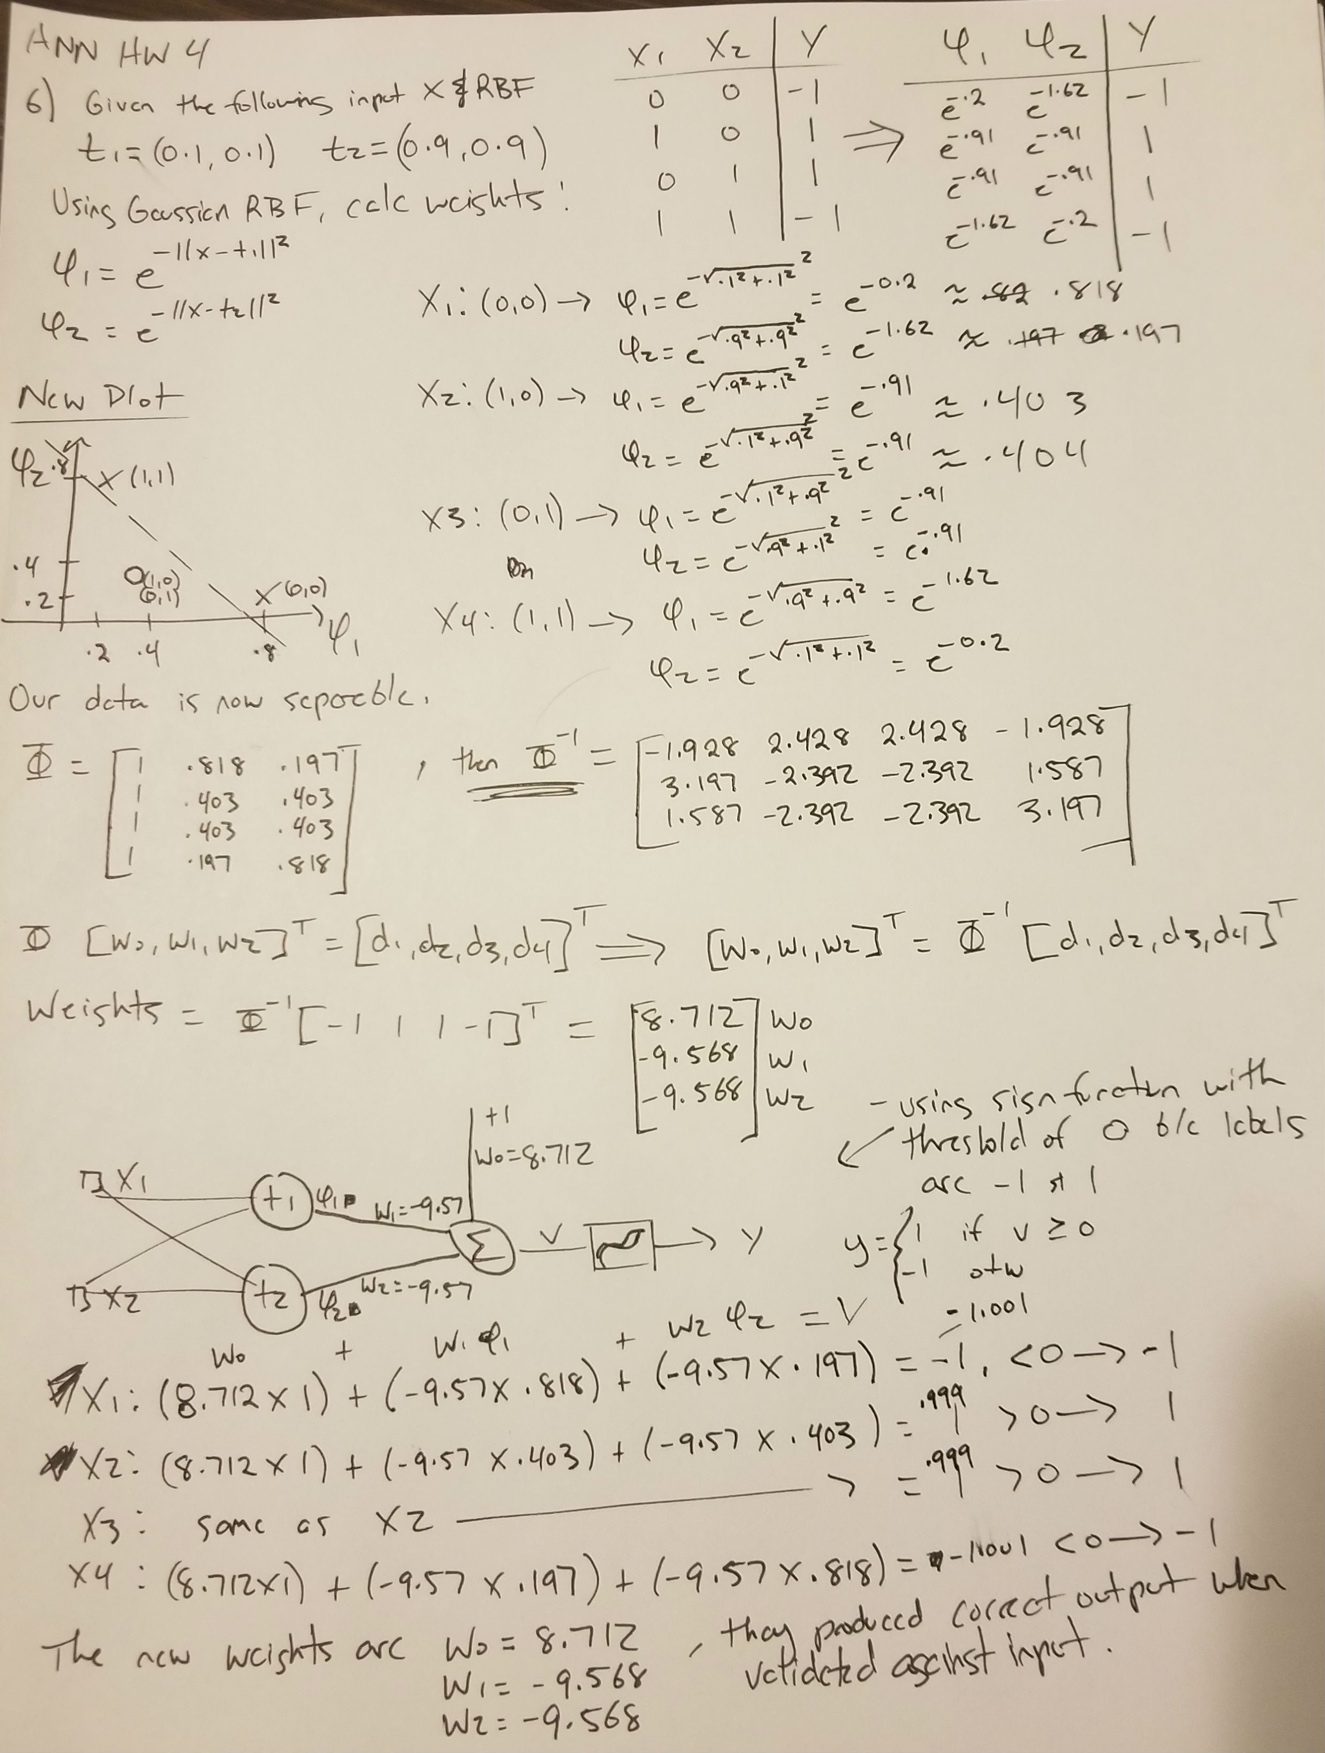 ANN HW 4
6) Given the following input X & RBF
t1 = (0.1, 0.1) t2 = (0.9, 0.9)
Using Gaussian RBF, calc weights:
φ1 = e^-||x-t1||²
φ2 = e^-||x-t2||²
X1 X2 | Y
0 0 | -1
1 0 | 1
0 1 | 1
1 1 | -1
⇒
φ1 φ2 | Y
e^-.2 e^-1.62 | -1
e^-.91 e^-.91 | 1
e^-.91 e^-.91 | 1
e^-1.62 e^-.2 | -1
X1: (0,0) → φ1 = e^-√.1²+.1² ² = e^-0.2 ≈ .818
φ2 = e^-√.9²+.9² ² = e^-1.62 ≈ .197
X2: (1,0) → φ1 = e^-√.9²+.1² ² = e^-.91 ≈ .403
φ2 = e^-√.1²+.9² ² = e^-.91 ≈ .404
X3: (0,1) → φ1 = e^-√.1²+.9² ² = e^-.91
φ2 = e^-√.9²+.1² ² = e^-.91
X4: (1,1) → φ1 = e^-√.9²+.9² ² = e^-1.62
φ2 = e^-√.1²+.1² = e^-0.2
New Plot
φ2 .8 X (1,1)
.4 O (1,0)
(0,1)
.2 X (0,0)
φ1
.2 .4 .8
Our data is now separable.
Φ = [1 .818 .197
1 .403 .403
1 .403 .403
1 .197 .818]
, then Φ^-1 = [-1.928 2.428 2.428 -1.928
3.197 -2.392 -2.392 1.587
1.587 -2.392 -2.392 3.197]
Φ [w0, w1, w2]^T = [d1, d2, d3, d4]^T ⇒ [w0, w1, w2]^T = Φ^-1 [d1, d2, d3, d4]^T
Weights = Φ^-1 [-1 1 1 -1]^T = [8.712] w0
[-9.568] w1
[-9.568] w2
- using sign function with
threshold of 0 b/c labels
are -1 & 1
y = { 1 if v ≥ 0
-1 otw
+1
w0 = 8.712
X1 t1 φ1 w1 = -9.57
Σ V → Y
X2 t2 φ2 w2 = -9.57
w0 + w1 φ1 + w2 φ2 = V
X1: (8.712 x 1) + (-9.57 x .818) + (-9.57 x .197) = -1, -1.001 < 0 → -1
X2: (8.712 x 1) + (-9.57 x .403) + (-9.57 x .403) = 1 .999 > 0 → 1
X3: same as X2 = 1 .999 > 0 → 1
X4: (8.712 x 1) + (-9.57 x .197) + (-9.57 x .818) = -1.001 < 0 → -1
The new weights are w0 = 8.712 , they produced correct output when
w1 = -9.568 validated against input.
w2 = -9.568